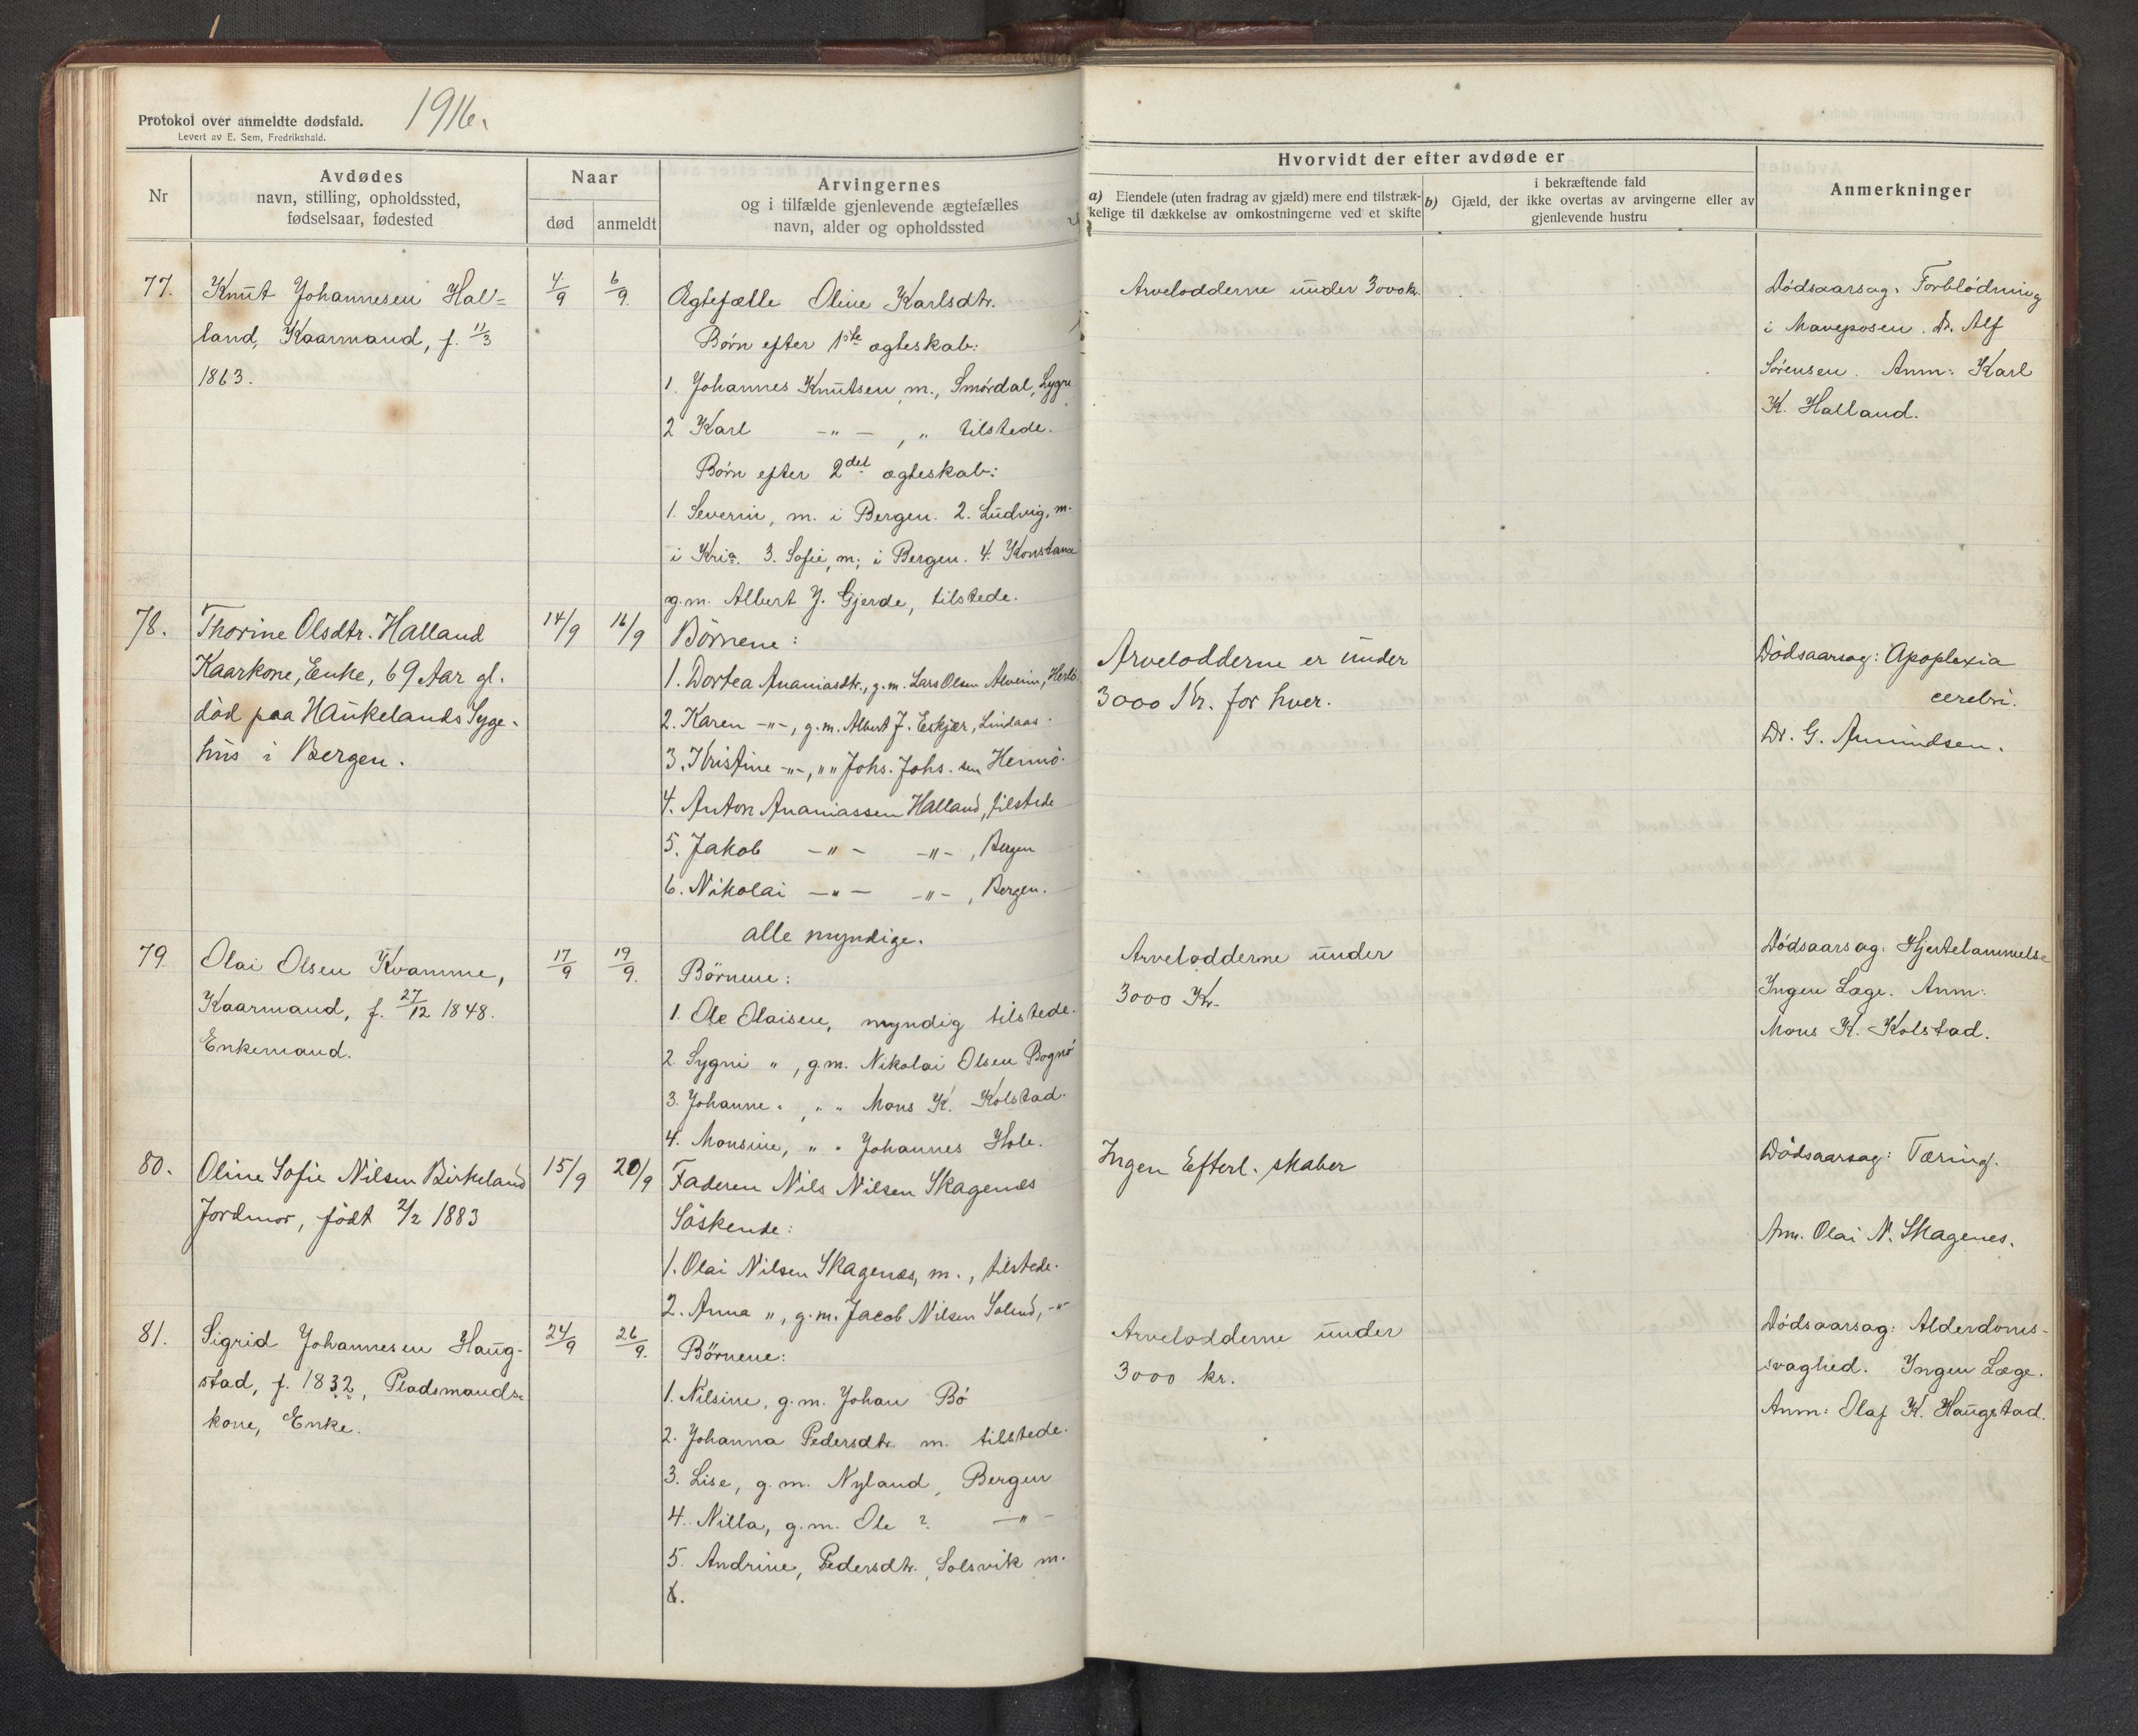 Protokol over anmeldte dødsfald.
1916.
Levert av E. Sem, Fredrikshald.
Nr
Avdødes
navn, stilling, opholdssted,
fødselsaar, fødested
Naar
død
anmeldt
Arvingernes
og i tilfælde gjenlevende ægtefælles
navn, alder og opholdssted
Hvorvidt der efter avdøde er
a) Eiendele (uten fradrag av gjæld) mere end tilstræk-
kelige til dækkelse av omkostningerne ved et skifte
i bekræftende fald
b) Gjæld, der ikke overtas av arvingerne eller av
gjenlevende hustru
Anmerkninger
77.
Knut Johannesen Hal=
land, Kaarmand, f. 11/3
1863.
4/9
6/9.
Ægtefælle Oline Karlsdtr.
Børn efter 1ste ægteskab:
1. Johannes Knutsen, m., Smørdal, Lygre
2 Karl -"-, " tilstede.
Børn efter 2det ægteskab:
1. Severin, m. i Bergen. 2. Ludvig, m.
i Kria. 3. Sofie, m; i Bergen. 4. Konstance
g.m. Albert J. Gjerde, tilstede.
Arvelodderne under 3000 kr.
Dödsaarsag: Forblödning
i Maveposen. Dr. Alf
Sörensen. Anm: Karl
K. Halland.
78.
Thorine Olsdtr. Halland
Kaarkone, Enke, 69 Aar gl.
död paa Haukelands Syge-
hus i Bergen.
14/9
16/9
Börnene:
1. Dortea Ananiasdtr., g.m. Lars Olsen Alverm, Herlö.
2. Karen -"-, g.m. Albert J. Eskjær, Lindaas.
3. Kristine -"-, " " Johs. Johs.sen Hennö.
4. Anton Ananiassen Halland, tilstede
5. Jakob -"- -"-, Bergen
6. Nikolai -"- -"-, Bergen.
alle myndige.
Arvelodderne er under
3000 Kr. for hver.
Dödsaarsag: Apoplexia
cerebri.
Dr. G. Amundsen.
79.
Olai Olsen Kvamme,
Kaarmand, f. 27/12 1848.
Enkemand.
17/9
19/9.
Börnene:
1. Ole Olaisen, myndig tilstede.
2. Sygni ", g.m. Nikolai Olsen Bognö
3. Johanne ", " " Mons K. Kolstad.
4. Monsine, " " Johannes Hole.
Arvelodderne under
3000 Kr.
Dödsaarsag: Hjertelammelse
Ingen Læge. Anm:
Mons K. Kolstad.
80.
Oline Sofie Nilsen Birkeland
Jordmor, födt 2/2 1883
15/9
20/9
Faderen Nils Nilsen Skagenes
Söskende:
1. Olai Nilsen Skagenes, m., tilstede.
2. Anna ", g.m. Jacob Nilsen Solend, -"-
Ingen Efterl.skaber
Dödsaarsag: Tæring.
Anm. Olai N. Skagenes.
81.
Sigrid Johannesen Haug-
stad, f. 1832, Pladsmands-
kone, Enke.
24/9
26/9.
Börnene:
1. Nilsine, g.m. Johan Bö
2. Johanna Pedersdtr. m. tilstede.
3. Lise, g.m. Nyland, Bergen
4. Nilla, g.m. Ole ? -"-
5. Andrine, Pedersdtr., Solsvik m.
6.
Arvelodderne under
3000 kr.
Dödsaarsag: Alderdoms-
svaghed. Ingen Læge.
Anm: Olaf K. Haugstad.